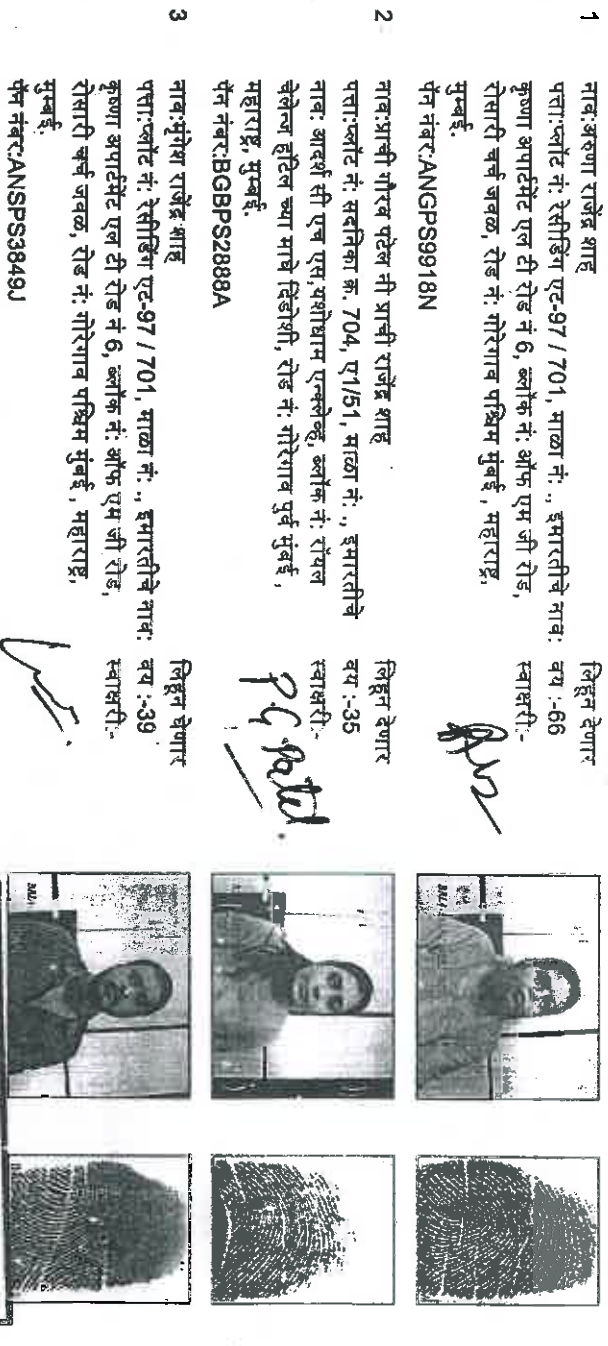 1
नाव:अरुणा राजेंद्र शाह
पत्ता:प्लॉट नं: रेसीडिंग एट-97 / 701, माळा नं: ., इमारतीचे नाव:
कृष्णा अपार्टमेंट एल टी रोड नं 6, ब्लॉक नं: ऑफ एम जी रोड,
रोसारी चर्च जवळ, रोड नं: गोरेगाव पश्चिम मुंबई , महाराष्ट्र,
मुम्बई.
पॅन नंबर:ANGPS9918N
लिहून देणार
वय :-66
स्वाक्षरी:-
2
नाव:प्राची गौरव पटेल नी प्राची राजेंद्र शाह
पत्ता:प्लॉट नं: सदनिका क्र. 704, ए1/51, माळा नं: ., इमारतीचे
नाव: आदर्श सी एच एस,यशोधाम एन्क्लेव्ह, ब्लॉक नं: रॉयल
चेलेन्ज हॉटेल च्या मागे दिंडोशी, रोड नं: गोरेगाव पूर्व मुंबई ,
महाराष्ट्र, मुम्बई.
पॅन नंबर:BGBPS2888A
लिहून देणार
वय :-35
स्वाक्षरी:-
P.G.Patel
3
नाव:मुंगेश राजेंद्र शाह
पत्ता:प्लॉट नं: रेसीडिंग एट-97 / 701, माळा नं: ., इमारतीचे नाव:
कृष्णा अपार्टमेंट एल टी रोड नं 6, ब्लॉक नं: ऑफ एम जी रोड,
रोसारी चर्च जवळ, रोड नं: गोरेगाव पश्चिम मुंबई , महाराष्ट्र,
मुम्बई.
पॅन नंबर:ANSPS3849J
लिहून देणार
वय :-39
स्वाक्षरी:-